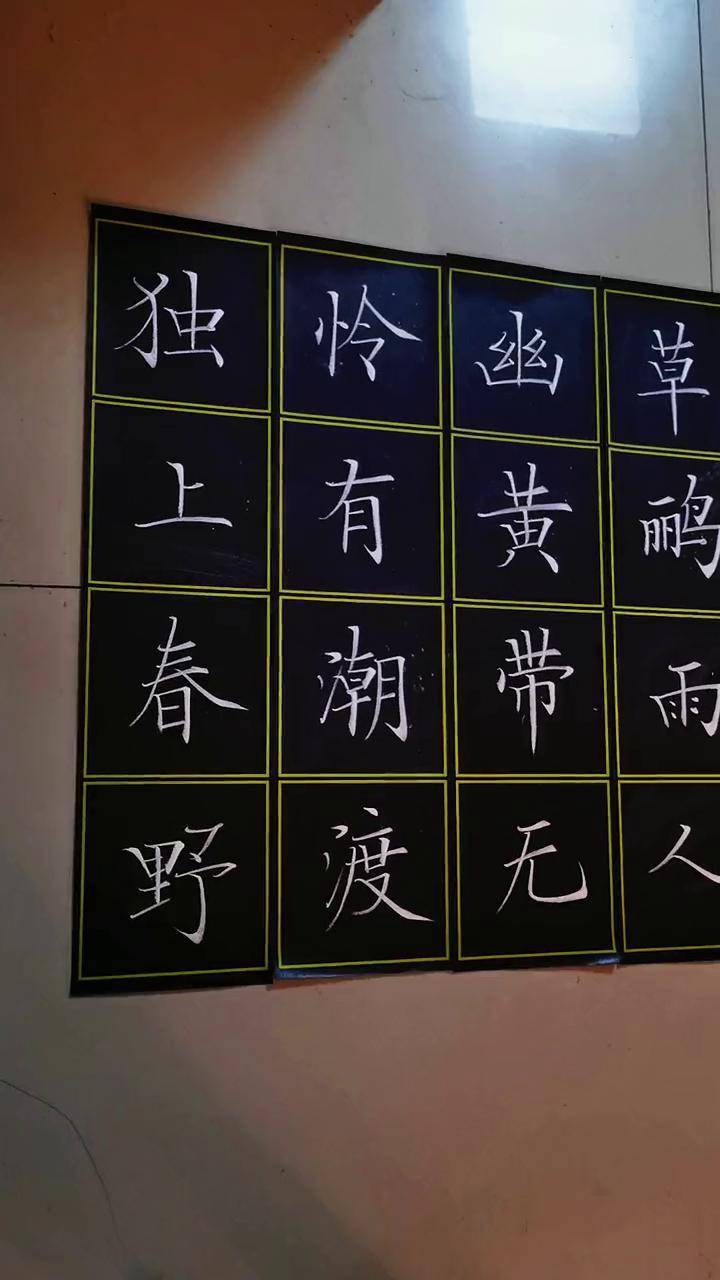 独怜幽草
上有黄鹂
春潮带雨
野渡无人